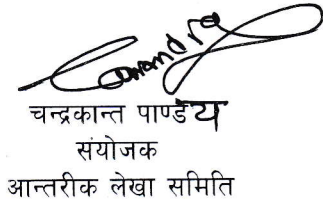 चन्द्रकान्त पाण्डेय
संयोजक
आन्तरीक लेखा समिति